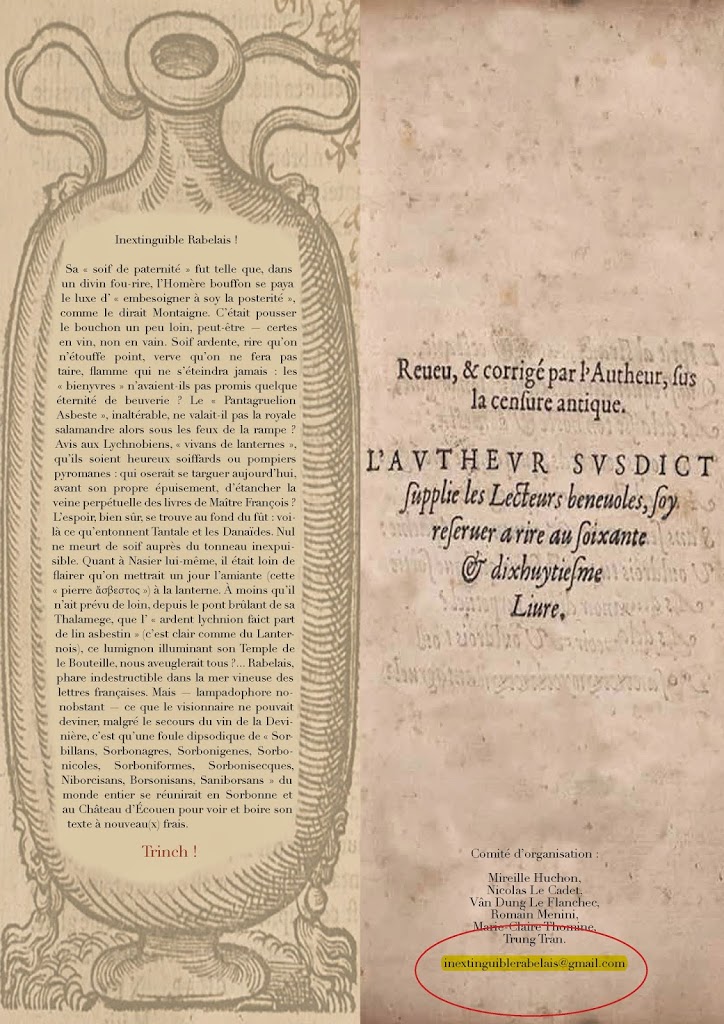 Inextinguible Rabelais !
Sa « soif de paternité » fut telle que, dans
un divin fou-rire, l'Homère bouffon se paya
le luxe d' « embesoigner à soy la posterité »,
comme le dirait Montaigne. C'était pousser
le bouchon un peu loin, peut-être — certes
en vin, non en vain. Soif ardente, rire qu'on
n'étouffe point, verve qu'on ne fera pas
taire, flamme qui ne s'éteindra jamais : les
« bienyvres » n'avaient-ils pas promis quelque
éternité de beuverie ? Le « Pantagruelion
Asbeste », inaltérable, ne valait-il pas la royale
salamandre alors sous les feux de la rampe ?
Avis aux Lychnobiens, « vivans de lanternes »,
qu'ils soient heureux soiffards ou pompiers
pyromanes : qui oserait se targuer aujourd'hui,
avant son propre épuisement, d'étancher la
veine perpétuelle des livres de Maître François ?
L'espoir, bien sûr, se trouve au fond du fût : voi-
là ce qu'entonnent Tantale et les Danaïdes. Nul
ne meurt de soif auprès du tonneau inexpui-
sible. Quant à Nasier lui-même, il était loin de
flairer qu'on mettrait un jour l'amiante (cette
« pierre ἄσβεστος ») à la lanterne. À moins qu'il
n'ait prévu de loin, depuis le pont brûlant de sa
Thalamege, que l' « ardent lychnion faict part
de lin asbestin » (c'est clair comme du Lanter-
nois), ce lumignon illuminant son Temple de
le Bouteille, nous aveuglerait tous ?... Rabelais,
phare indestructible dans la mer vineuse des
lettres françaises. Mais — lampadophore no-
nobstant — ce que le visionnaire ne pouvait
deviner, malgré le secours du vin de la Devi-
nière, c'est qu'une foule dipsodique de « Sor-
billans, Sorbonagres, Sorbonigenes, Sorbo-
nicoles, Sorboniformes, Sorbonisecques,
Niborcisans, Borsonisans, Saniborsans » du
monde entier se réunirait en Sorbonne et
au Château d'Écouen pour voir et boire son
texte à nouveau(x) frais.
Trinch !
Reueu, & corrigé par l'Autheur, ſus
la cenſure antique.
L'AVTHEVR SVSDICT
ſupplie les Lecteurs beneuoles, ſoy
reſeruer a rire au ſoixante
& dixhuytieſme
Liure.
Comité d'organisation :
Mireille Huchon,
Nicolas Le Cadet,
Vân Dung Le Flanchec,
Romain Menini,
Marie-Claire Thomine,
Trung Tran.
inextinguiblerabelais@gmail.com